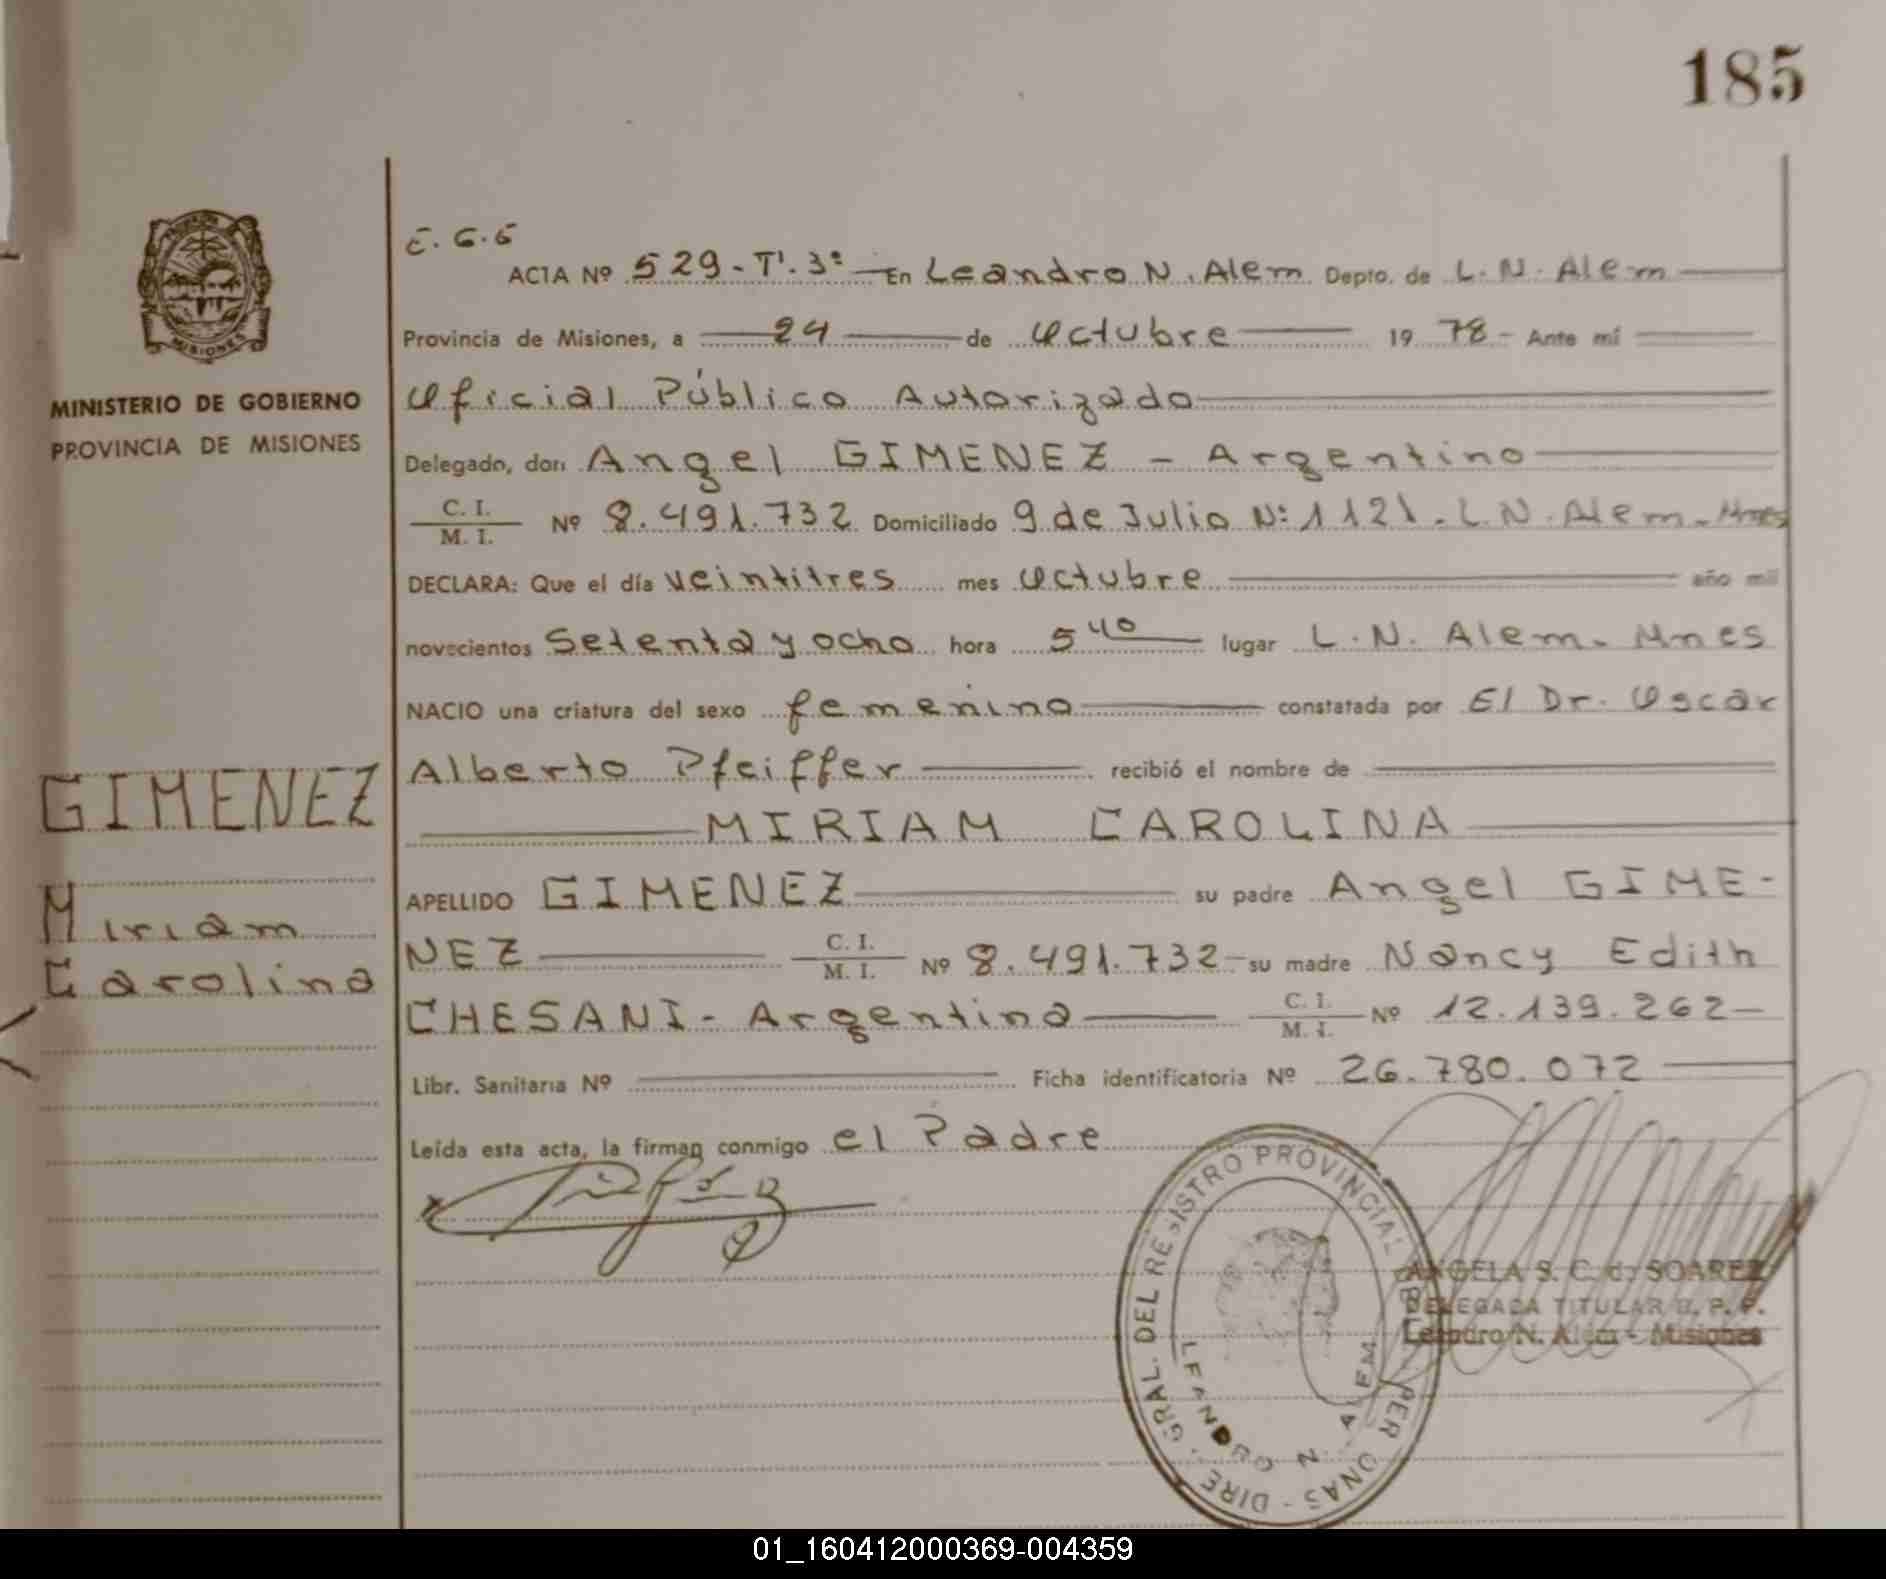 185
MISIONES
MINISTERIO DE GOBIERNO
PROVINCIA DE MISIONES
GIMENEZ
Miriam
Carolina
E. G. G
ACTA Nº 529-Tº.3º En Leandro N. Alem Depto. de L. N. Alem
Provincia de Misiones, a 24 de Octubre 19 78- Ante mí
Oficial Público Autorizado
Delegado, don Angel GIMENEZ - Argentino
C. I.
M. I. Nº 8.491.732 Domiciliado 9 de Julio Nº 1121. L. N. Alem-Mnes
DECLARA: Que el día veintitres mes Octubre año mil
novecientos Setenta y ocho hora 5 40 lugar L. N. Alem- Mnes
NACIO una criatura del sexo femenino constatada por El Dr. Oscar
Alberto Pfeiffer recibió el nombre de
MIRIAM CAROLINA
APELLIDO GIMENEZ su padre Angel GIME-
NEZ C. I. M. I. Nº 8.491.732- su madre Nancy Edith
CHESANI- Argentina C. I. M. I. Nº 12.139.262-
Libr. Sanitaria Nº Ficha identificatoria Nº 26.780.072
Leída esta acta, la firman conmigo el Padre
DIRE. GRAL. DEL REGISTRO PROVINCIAL PER ONAS -
LEANDRO N. ALEM
ANGELA S. C. de SOAREZ
DELEGADA TITULAR R. P. P.
Leandro N. Alem - Misiones
01_160412000369-004359